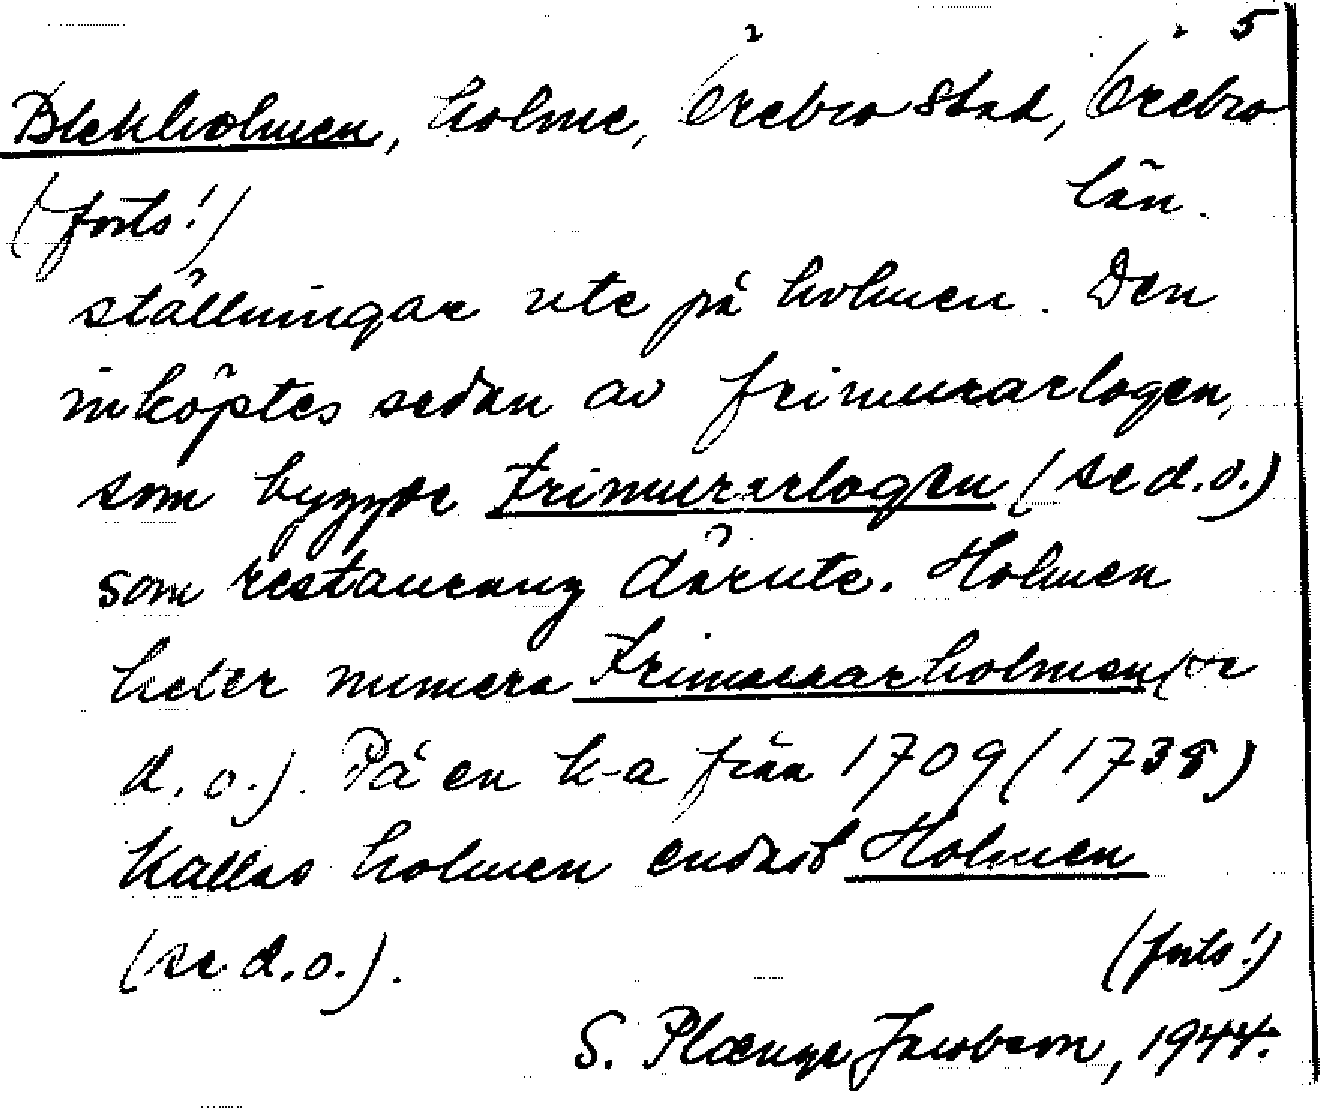 5
Blekholmen, holme, Örebro stad, Örebro
(forts!) län.
ställningar ute på holmen. Den
inköptes sedan av frimurarlogen,
som byggde Frimurarlogen (se d.o.)
som restaurang därute. Holmen
heter numera Frimurarholmen (se
d.o.). På en k-a från 1709 (1738)
kallas holmen endast Holmen
(se d.o.). (forts!)
S. Plænge Jacobson, 1944.